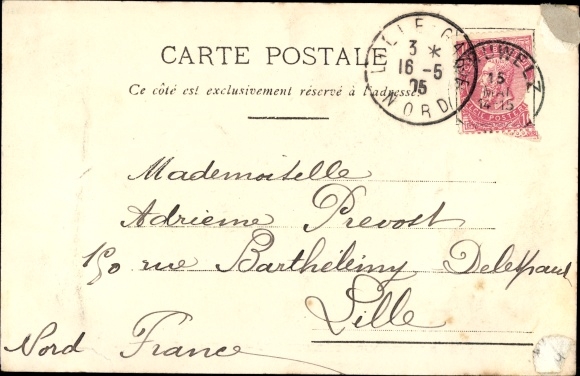 CARTE POSTALE
Ce côté est exclusivement réservé à l'adresse
LILLE-GARE
3 *
16 - 5
05
NORD
15
MAI
POSTES
Mademoiselle
Adrienne Prevost
150 rue Barthélémy Delespaul
Lille
Nord France